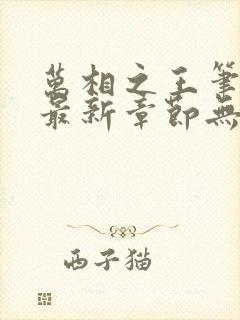 萬相之王筆
最新章節無
西子猫